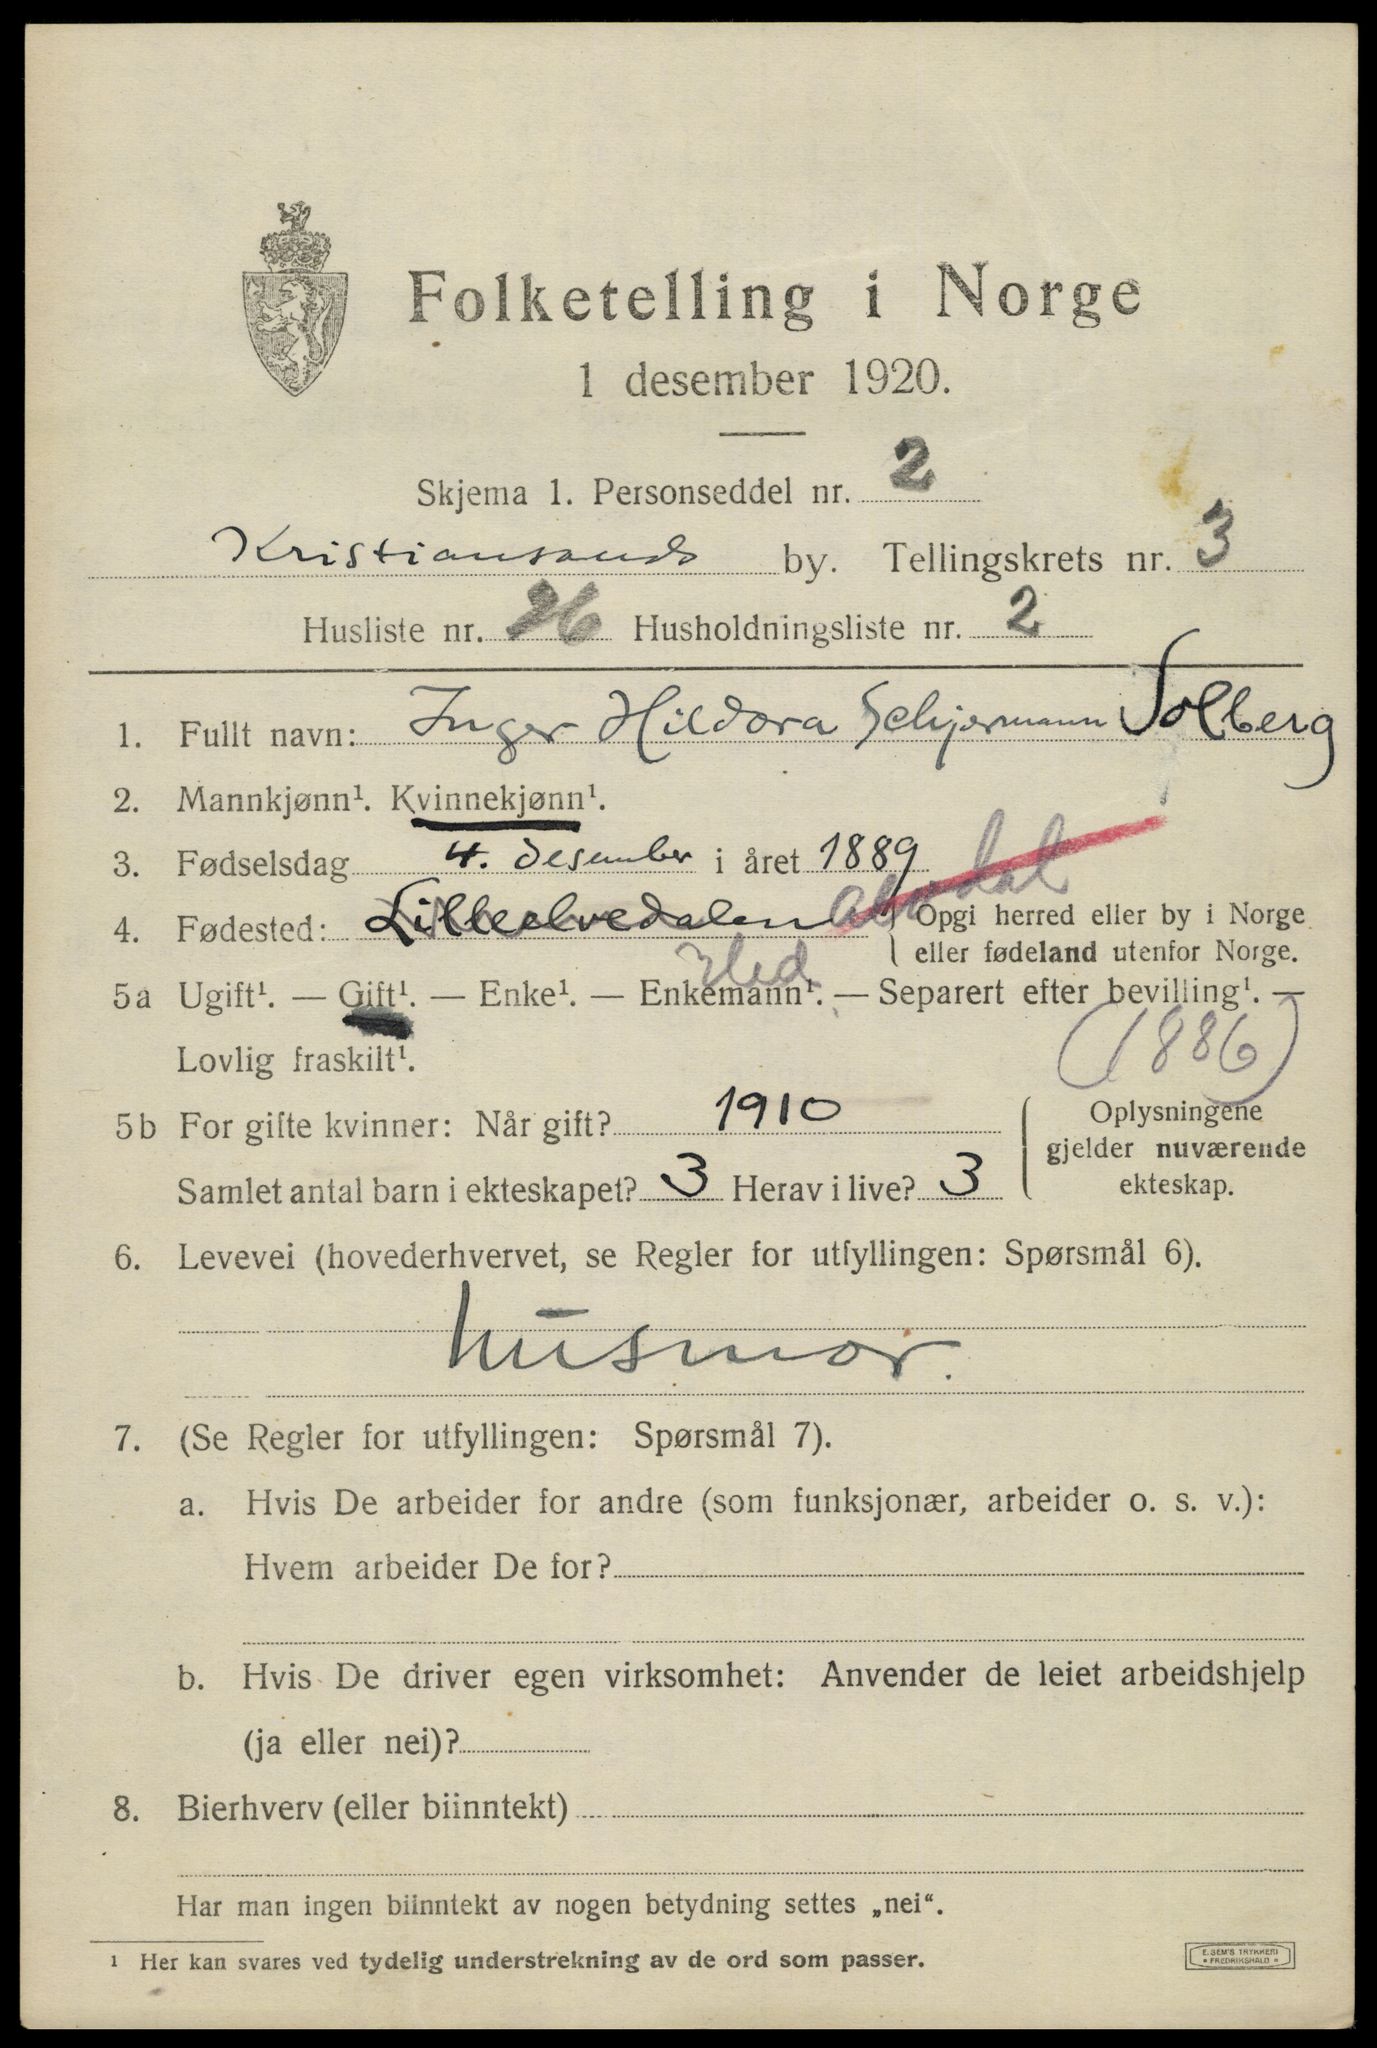 Folketelling i Norge
1 desember 1920.
Skjema 1. Personseddel nr. 2
Kristiansands by. Tellingskrets nr. 3
Husliste nr. 26 Husholdningsliste nr. 2
1. Fullt navn: Inger Hildora Schjermann Solberg
2. Mannkjønn¹. Kvinnekjønn¹.
3. Fødselsdag 4. desember i året 1889
4. Fødested: Lilleelvedalen Alvdal
Opgi herred eller by i Norge
eller fødeland utenfor Norge.
Hed.
5a Ugift¹. — Gift¹. — Enke¹. — Enkemann¹. — Separert efter bevilling¹. —
Lovlig fraskilt¹.
(1886)
5b For gifte kvinner: Når gift? 1910
Samlet antal barn i ekteskapet? 3 Herav i live? 3
Oplysningene
gjelder nuværende
ekteskap.
6. Levevei (hovederhvervet, se Regler for utfyllingen: Spørsmål 6).
husmor.
7. (Se Regler for utfyllingen: Spørsmål 7).
a. Hvis De arbeider for andre (som funksjonær, arbeider o. s. v.):
Hvem arbeider De for?
b. Hvis De driver egen virksomhet: Anvender de leiet arbeidshjelp
(ja eller nei)?
8. Bierhverv (eller biinntekt)
Har man ingen biinntekt av nogen betydning settes „nei“.
¹ Her kan svares ved tydelig understrekning av de ord som passer.
E. SEM'S TRYKKERI
* FREDRIKSHALD *